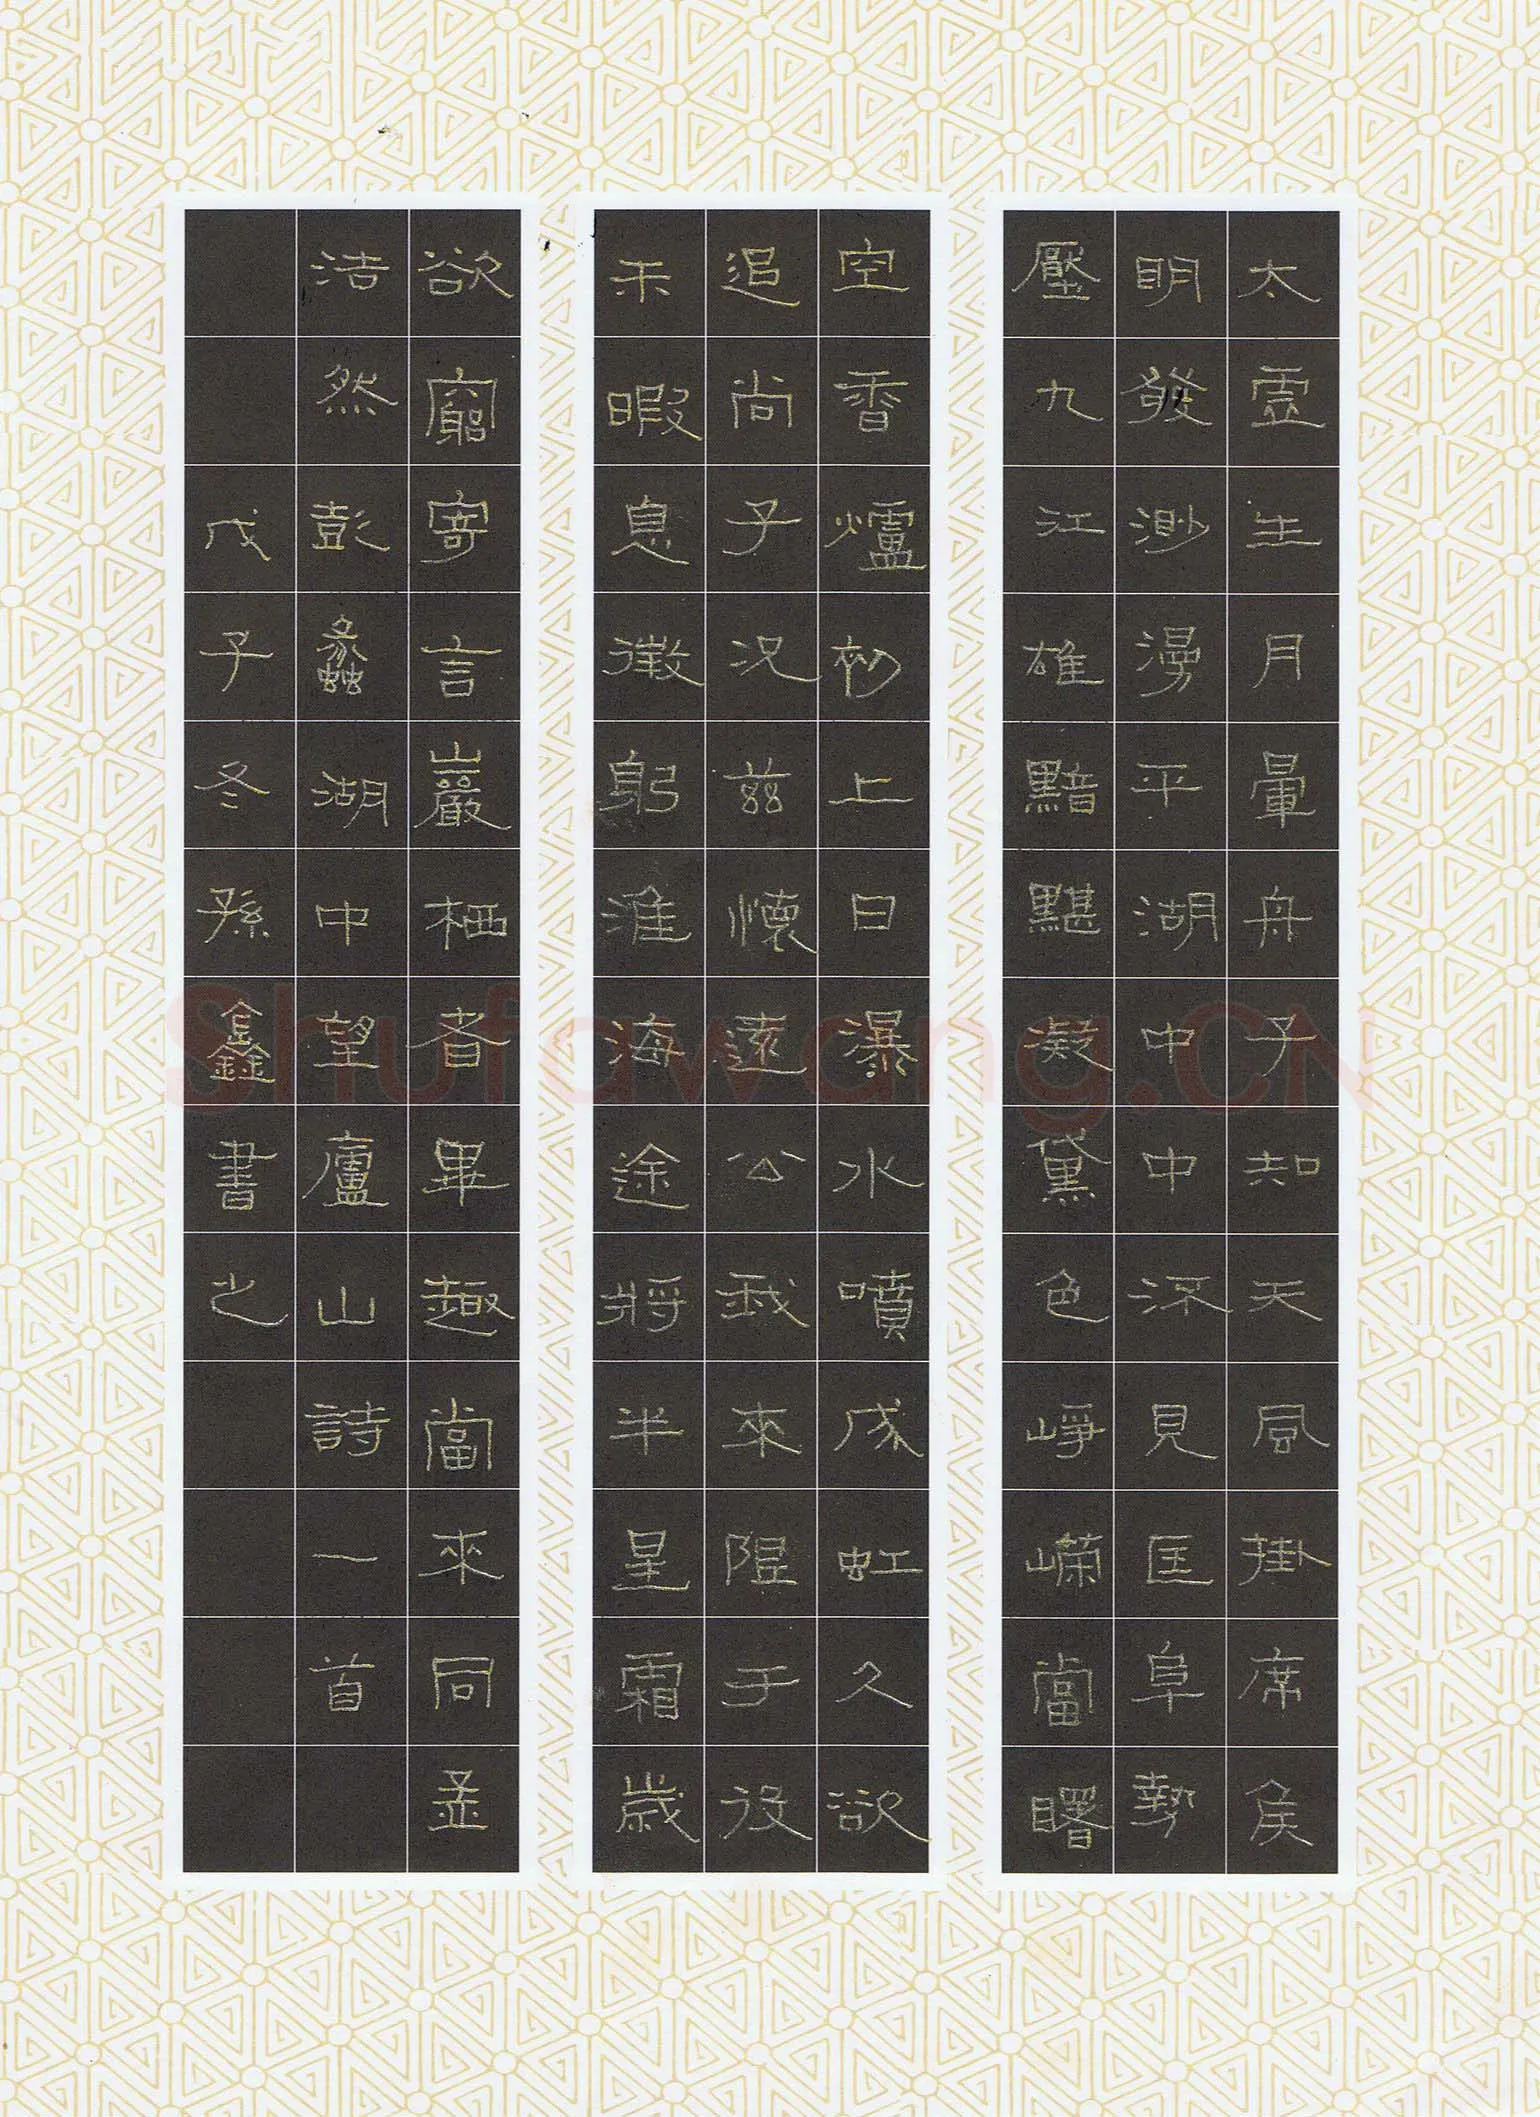 太虛生月暈舟子知天風掛席候
明發渺漫平湖中中流見匡阜勢
壓九江雄黯黮凝黛色崢嶸當曙
空香爐初上日瀑水噴成虹久欲
追尚子況茲懷遠公我來限于役
未暇息微躬淮海途將半星霜歲
欲窮寄言巖栖者畢趣當來同孟
浩然彭蠡湖中望廬山詩一首
戊子冬孫鑫書之
Shufawang.CN